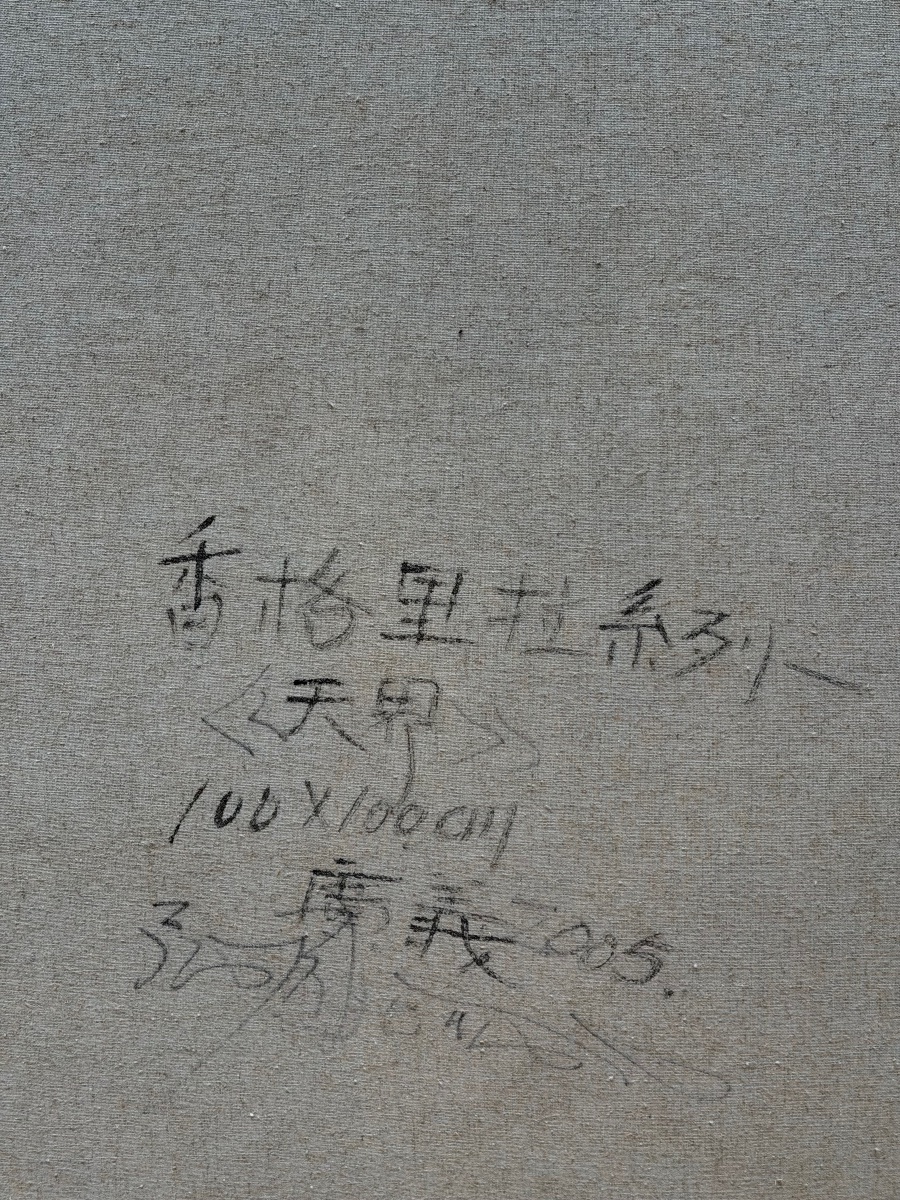 香格里拉系列
《天界》
100X100cm
義 2005.